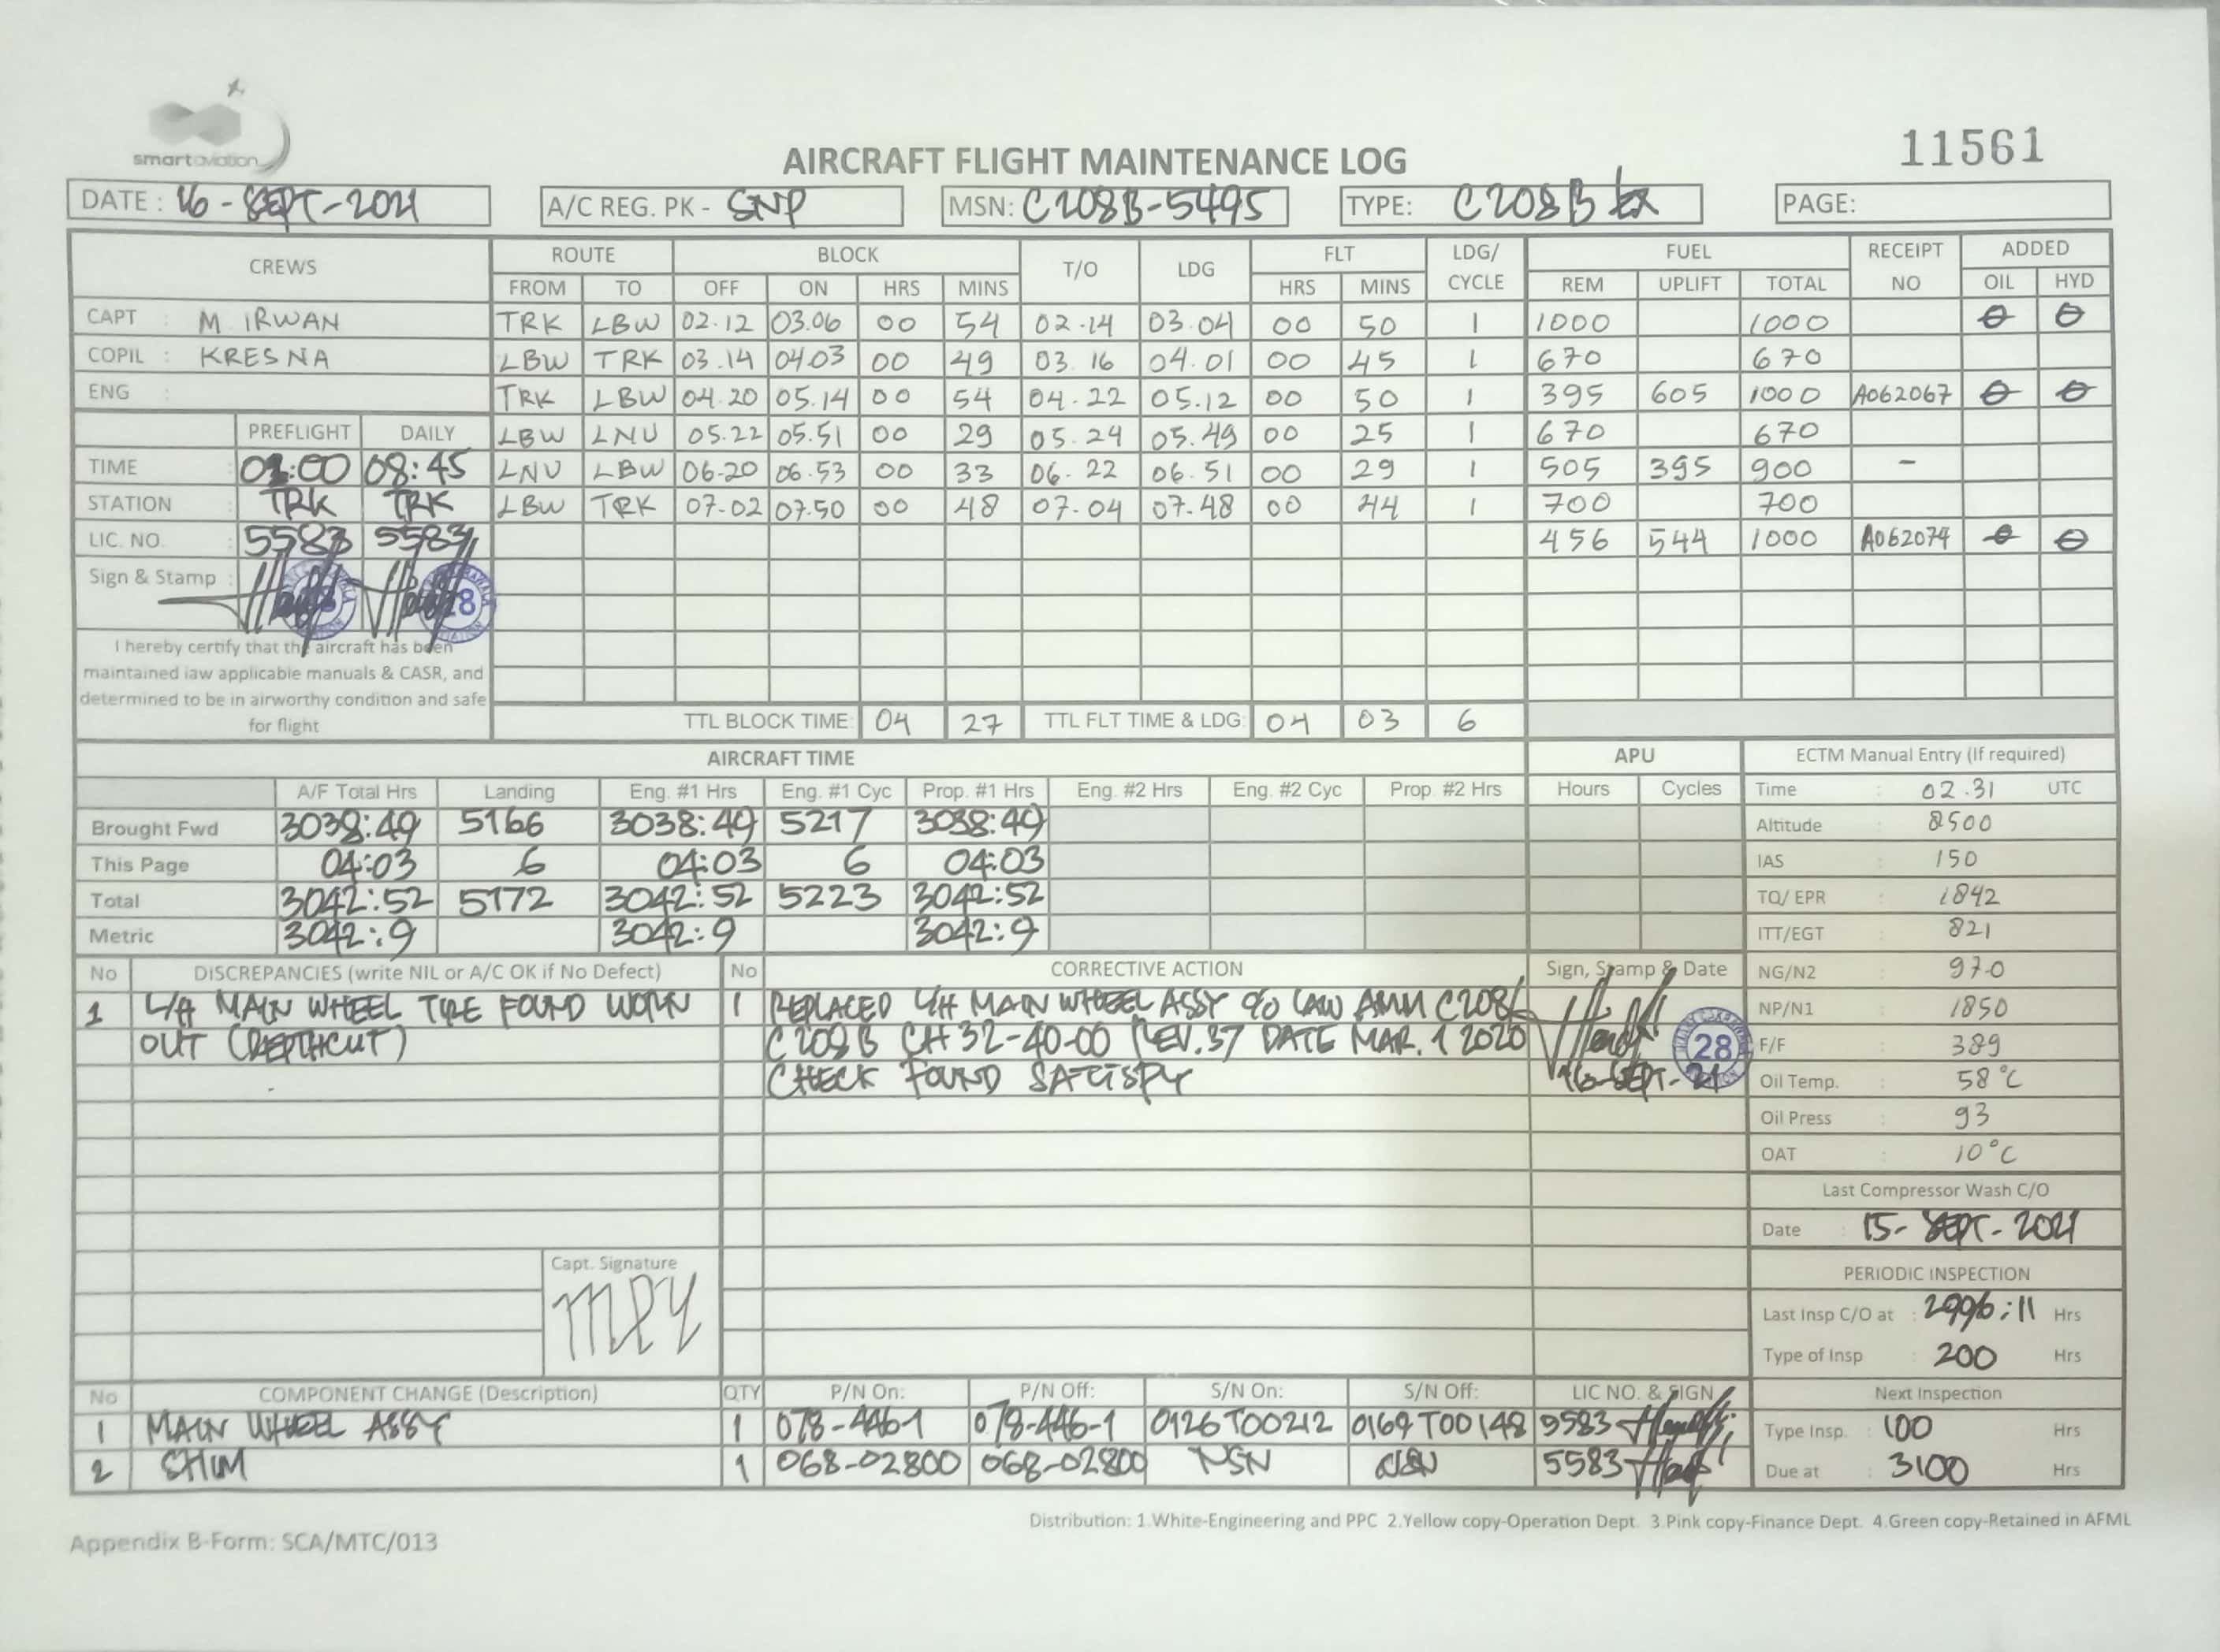 smart aviation
11561
AIRCRAFT FLIGHT MAINTENANCE LOG
DATE : 16 - SEPT - 2021 A/C REG. PK - SNP MSN: C208B-5495 TYPE: C208B EX PAGE:
CREWS ROUTE BLOCK T/O LDG FLT LDG/ CYCLE FUEL RECEIPT NO ADDED
FROM TO OFF ON HRS MINS HRS MINS REM UPLIFT TOTAL OIL HYD
CAPT : M IRWAN TRK LBW 02.12 03.06 00 54 02.14 03.04 00 50 1 1000 1000 θ θ
COPIL : KRESNA LBW TRK 03.14 04.03 00 49 03.16 04.01 00 45 1 670 670
ENG : TRK LBW 04.20 05.14 00 54 04.22 05.12 00 50 1 395 605 1000 A062067 θ θ
PREFLIGHT DAILY LBW LNU 05.22 05.51 00 29 05.24 05.49 00 25 1 670 670
TIME : 01:00 08:45 LNU LBW 06-20 06.53 00 33 06.22 06.51 00 29 1 505 395 900 -
STATION : TRK TRK LBW TRK 07.02 07.50 00 48 07.04 07.48 00 44 1 700 700
LIC. NO. : 5583 5583 456 544 1000 A062074 θ θ
Sign & Stamp : 28
I hereby certify that the aircraft has been
maintained iaw applicable manuals & CASR, and
determined to be in airworthy condition and safe
for flight
TTL BLOCK TIME: 04 27 TTL FLT TIME & LDG: 04 03 6
AIRCRAFT TIME APU ECTM Manual Entry (If required)
A/F Total Hrs Landing Eng. #1 Hrs Eng. #1 Cyc Prop. #1 Hrs Eng. #2 Hrs Eng. #2 Cyc Prop. #2 Hrs Hours Cycles Time : 02.31 UTC
Brought Fwd 3038:49 5166 3038:49 5217 3038:49 Altitude : 8500
This Page 04:03 6 04:03 6 04:03 IAS : 150
Total 3042:52 5172 3042:52 5223 3042:52 TQ/ EPR : 1842
Metric 3042:9 3042:9 3042:9 ITT/EGT : 821
No DISCREPANCIES (write NIL or A/C OK if No Defect) No CORRECTIVE ACTION Sign, Stamp & Date NG/N2 970
1 L/H MAIN WHEEL TIRE FOUND WORN 1 REPLACED L/H MAIN WHEEL ASSY C/O IAW AMM C208/ NP/N1 1850
OUT (DEPTHCUT) C208B CH 32-40-00 REV.37 DATE MAR. 1 2020 28 F/F : 389
CHECK FOUND SATISFY 16-SEPT-21 Oil Temp. : 58°C
Oil Press : 93
OAT : 10°C
Last Compressor Wash C/O
Date : 15- SEPT - 2021
Capt. Signature
PERIODIC INSPECTION
Last Insp C/O at : 2996:11 Hrs
Type of Insp : 200 Hrs
No COMPONENT CHANGE (Description) QTY P/N On: P/N Off: S/N On: S/N Off: LIC NO. & SIGN Next Inspection
1 MAIN WHEEL ASSY 1 078-446-1 078-446-1 0126T00212 0169T00148 5583 Type Insp. : 100 Hrs
2 SHIM 1 068-02800 068-02800 NSN NSN 5583 Due at : 3100 Hrs
Distribution: 1.White-Engineering and PPC 2.Yellow copy-Operation Dept. 3.Pink copy-Finance Dept. 4.Green copy-Retained in AFML
Appendix B-Form: SCA/MTC/013